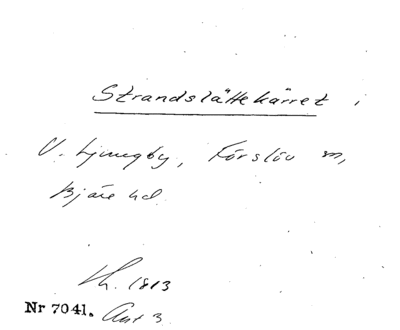 Strandslättekärret i
V. Ljungby, Förslöv sn,
Bjäre hd.
Kh. 1813
Nr 7041. Akt 3